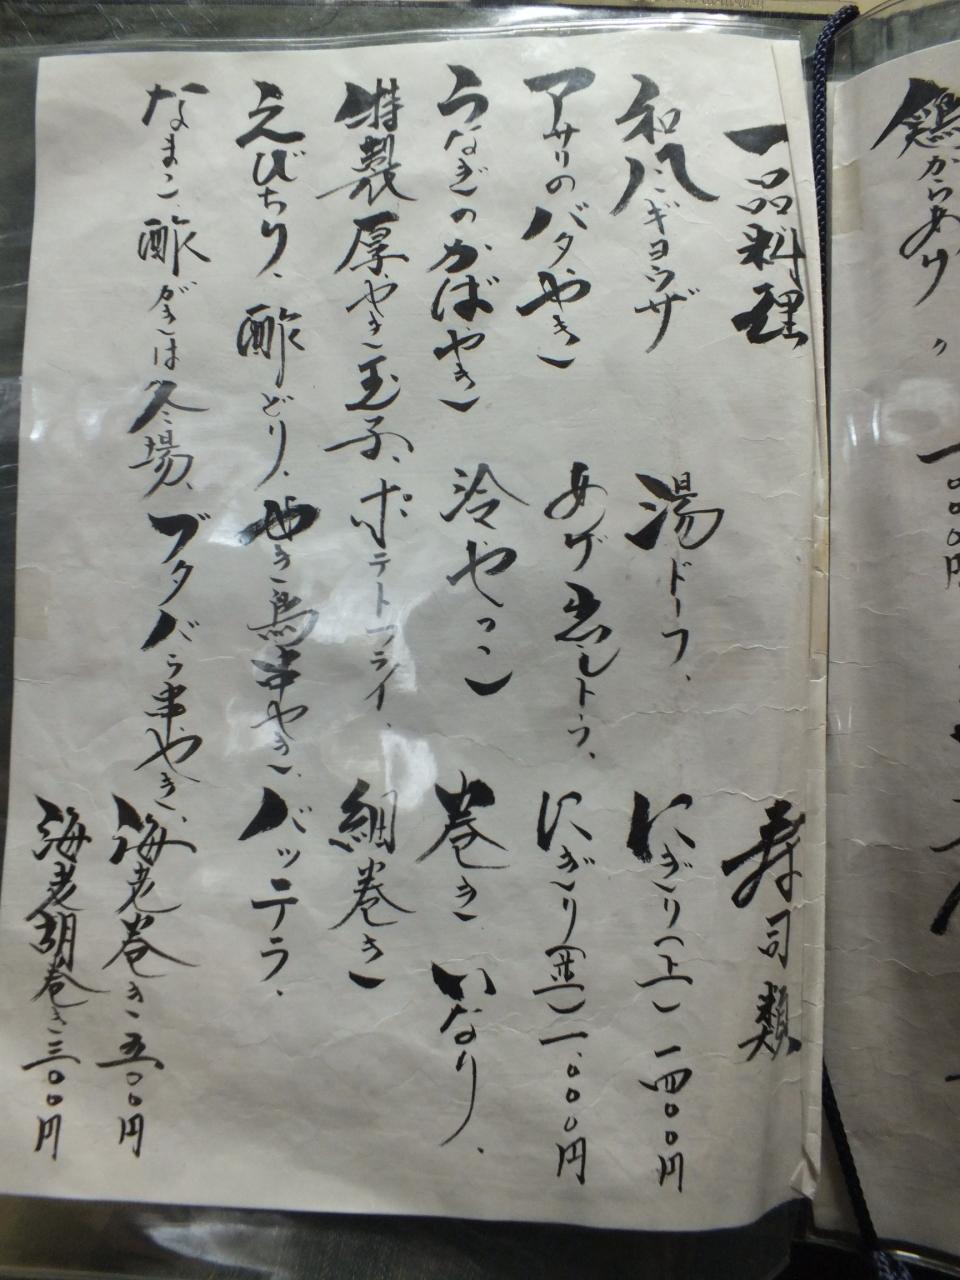 鶏からあげ
一品料理
寿司類
和八ギョウザ
湯ドーフ、
にぎり(上)一四〇〇円
アサリのバタやき
あげ出しトーフ、
にぎり(並)一、〇〇〇円
うなぎのかばやき
冷やっこ
巻き いなり、
特製厚やき玉子、
ポテトフライ、
細巻き
えびちり、酢どり、
やき鳥串やき、
バッテラ、
なまこ、酢がきは冬場、
ブタバラ串やき、
海老巻き 五〇〇円
海老胡巻き 三〇〇円